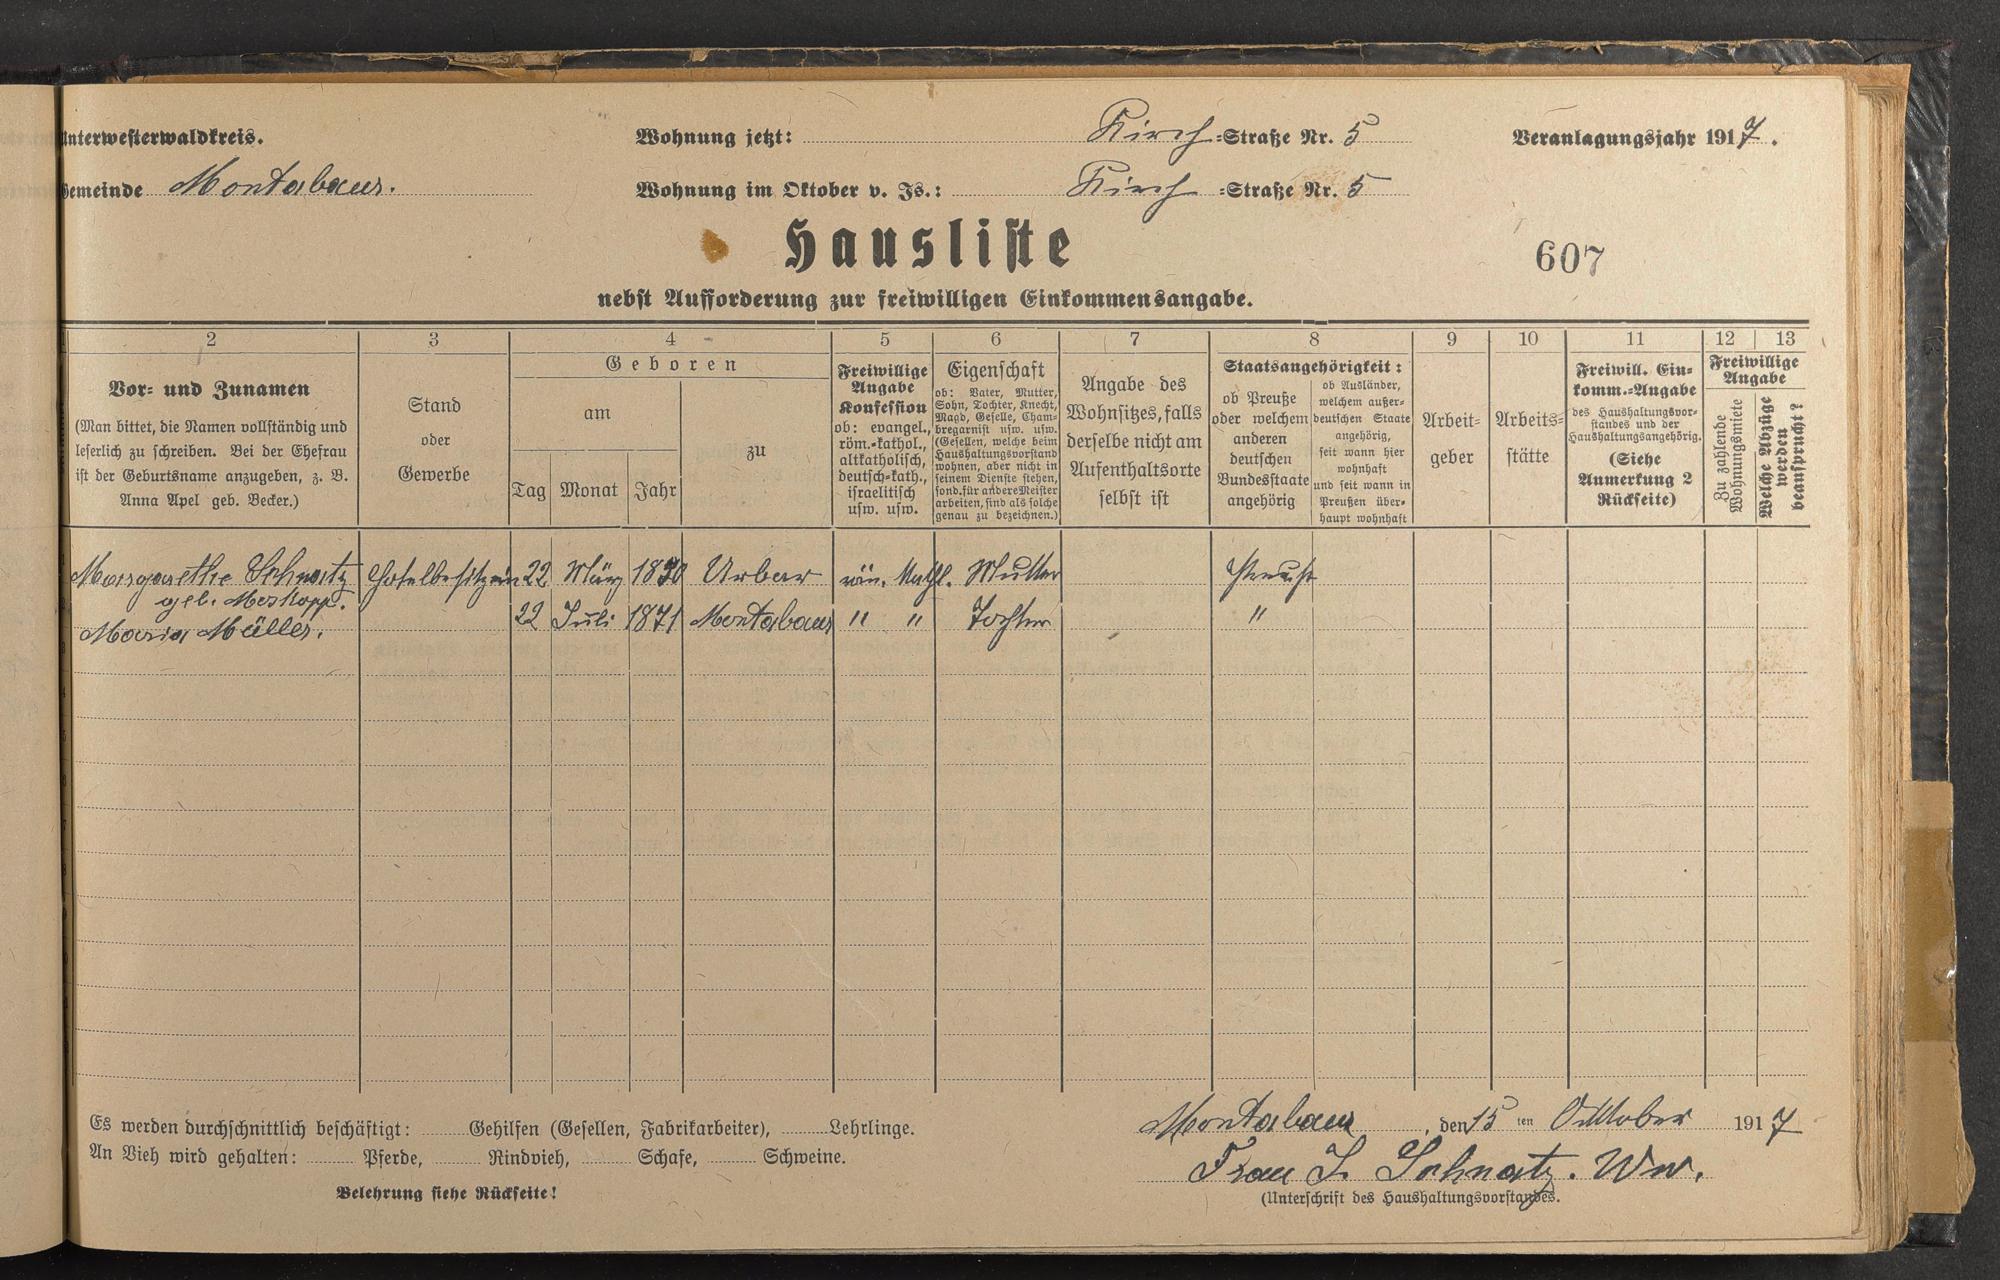 Unterwesterwaldkreis.
Wohnung jetzt: Kirch-Straße Nr. 5
Veranlagungsjahr 1917.
Gemeinde Montabaur.
Wohnung im Oktober v. Js.: Kirch-Straße Nr. 5
Hausliste
607
nebst Aufforderung zur freiwilligen Einkommensangabe.
2 3 4 5 6 7 8 9 10 11 12 13
Vor- und Zunamen
(Man bittet, die Namen vollständig und
leserlich zu schreiben. Bei der Ehefrau
ist der Geburtsname anzugeben, z. B.
Anna Apel geb. Becker.)
Stand
oder
Gewerbe
Geboren
am
Tag Monat Jahr
zu
Freiwillige
Angabe
Konfession
ob: evangel.,
röm.-kathol.,
altkatholisch,
deutsch-kath.,
israelitisch
usw. usw.
Eigenschaft
ob: Vater, Mutter,
Sohn, Tochter, Knecht,
Magd, Geselle, Cham-
bregarnist usw. usw.
(Gesellen, welche beim
Haushaltungsvorstand
wohnen, aber nicht in
seinem Dienste stehen,
sond. für andere Meister
arbeiten, sind als solche
genau zu bezeichnen.)
Angabe des
Wohnsitzes, falls
derselbe nicht am
Aufenthaltsorte
selbst ist
Staatsangehörigkeit:
ob Preuße
oder welchem
anderen
deutschen
Bundesstaate
angehörig
ob Ausländer,
welchem außer-
deutschen Staate
angehörig,
seit wann hier
wohnhaft
und seit wann in
Preußen über-
haupt wohnhaft
Arbeit-
geber
Arbeits-
stätte
Freiwill. Ein-
komm.-Angabe
des Haushaltungsvor-
standes und der
Haushaltungsangehörig.
(Siehe
Anmerkung 2
Rückseite)
Freiwillige
Angabe
Zu zahlende
Wohnungsmiete
Welche Abzüge
werden
beansprucht?
Margarethe Schnatz Hotelbesitzerin 22 März Urbar röm. Kathl. Mutter Preuße
geb. Meskopp.
Maria Müller. 22 Juli 1871 Montabaur " " Tochter "
Es werden durchschnittlich beschäftigt: Gehilfen (Gesellen, Fabrikarbeiter), Lehrlinge.
An Vieh wird gehalten: Pferde, Rindvieh, Schafe, Schweine.
Belehrung siehe Rückseite!
Montabaur, den 15ten Oktober 1917
Frau J. Schnatz. Ww.
(Unterschrift des Haushaltungsvorstandes.